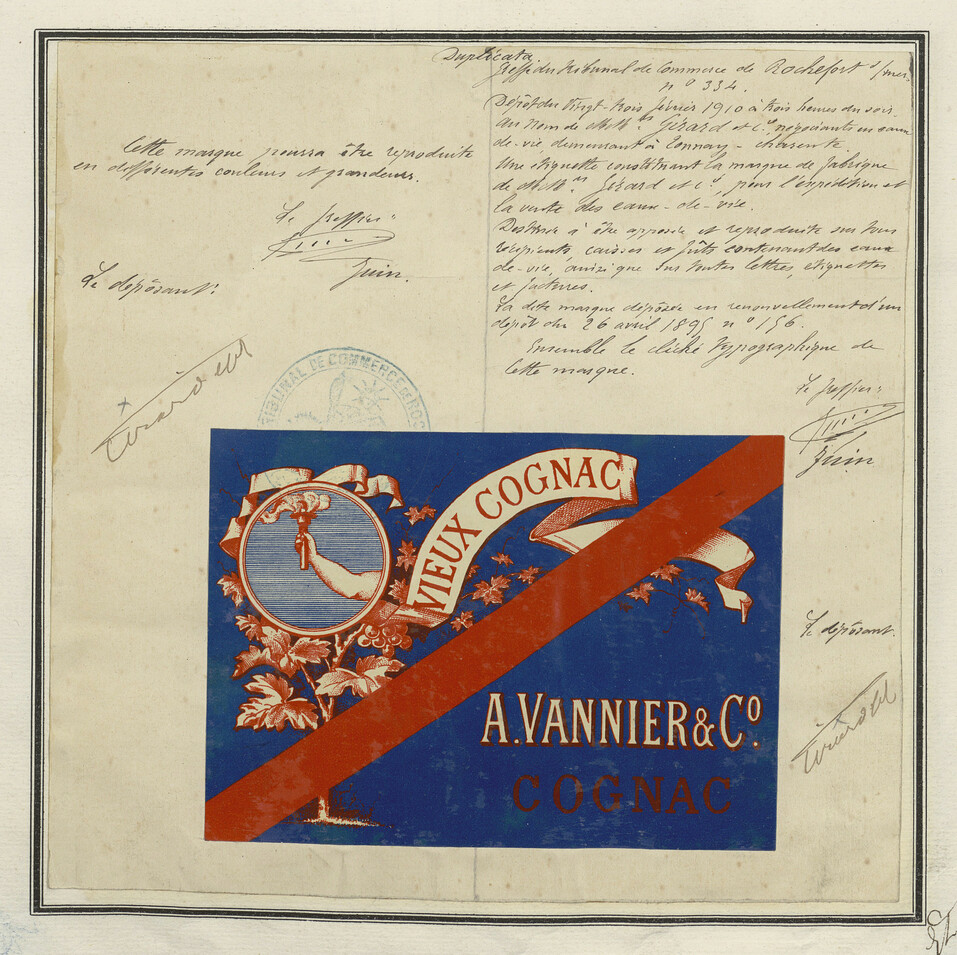 Duplicata
Greffe du tribunal de Commerce de Rochefort s/mer
n° 334.
Dépôt du Vingt-trois février 1910 à trois heures du soir
au nom de MM. Girard et Cie négociants en eaux
de-vie demeurant à Tonnay-Charente.
Une étiquette constituant la marque de fabrique
de MM. Girard et Cie, pour l'expédition et
la vente des eaux-de-vie.
Destinée à être apposée et reproduite sur tous
récipients, caisses et fûts contenant des eaux
de-vie, ainsi que sur toutes lettres, étiquettes
et factures.
La dite marque déposée en renouvellement d'un
dépôt du 26 avril 1895 n° 156.
Ensemble le cliché typographique de
cette marque.
Le greffier:
Juin
Le déposant.
Girard et Cie
Cette marque pourra être reproduite
en différentes couleurs et grandeurs.
Le greffier:
Juin.
Le déposant:
Girard et Cie
TRIBUNAL DE COMMERCE DE ROC
VIEUX COGNAC
A. VANNIER & Co.
COGNAC